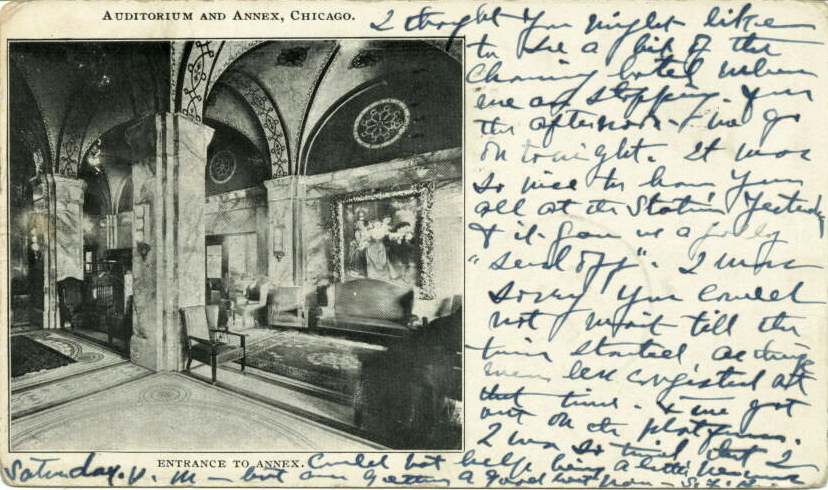 AUDITORIUM AND ANNEX, CHICAGO.
I thought you might like
to see a bit of the
charming hotel where
we are stopping.
the afternoon + we go
on tonight. It was
so nice to have you
all at the Station yesterday
+ it gave us a jolly
"send off". I was
sorry you could
not wait till the
train started as things
were less congested at
that time. + we got
out on the platform.
I was so tired that I
ENTRANCE TO ANNEX.
Saturday. P. M - could not help being a little
but am getting a good rest now